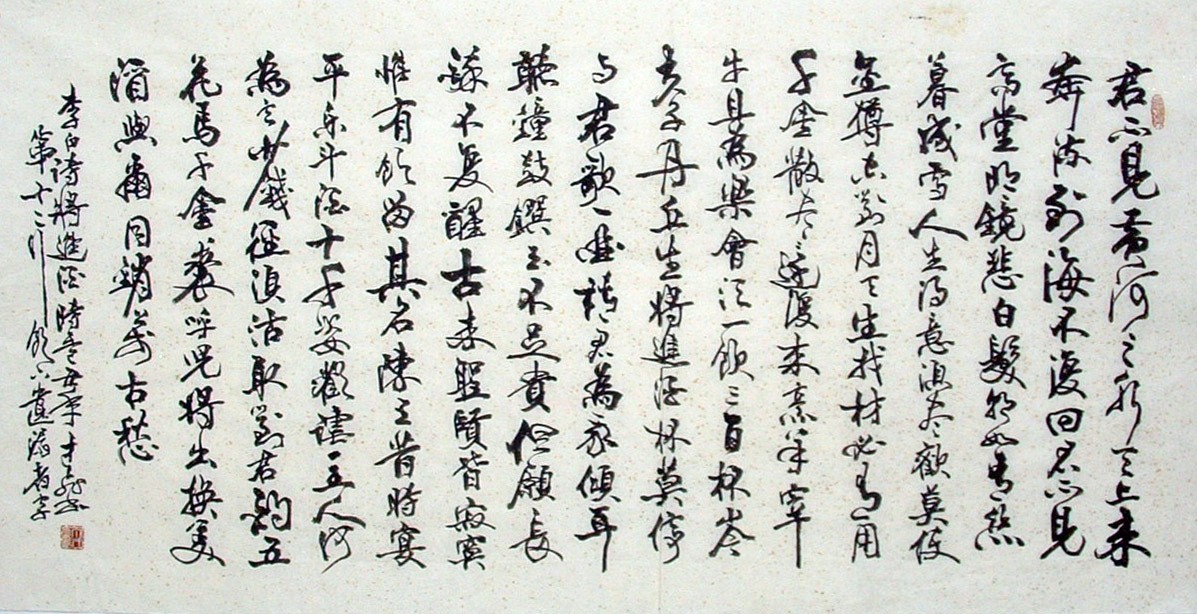 君不見黃河之水天上來
奔流到海不復回君不見
高堂明鏡悲白髮朝如青絲
暮成雪人生得意須盡歡莫使
金樽空對月天生我材必有用
千金散盡還復來烹羊宰
牛且為樂會須一飲三百杯岑
夫子丹丘生將進酒杯莫停
与君歌一曲請君為我傾耳
聽鐘鼓饌玉不足貴但願長
醉不复醒古來聖賢皆寂寞
惟有飲留其名陳王昔時宴
平乐斗酒十千恣歡謔主人何
為言少錢徑須沽取對君酌五
花馬千金裘呼兒將出換美
酒與爾同銷萬古愁
李白詩將進酒時
第十二